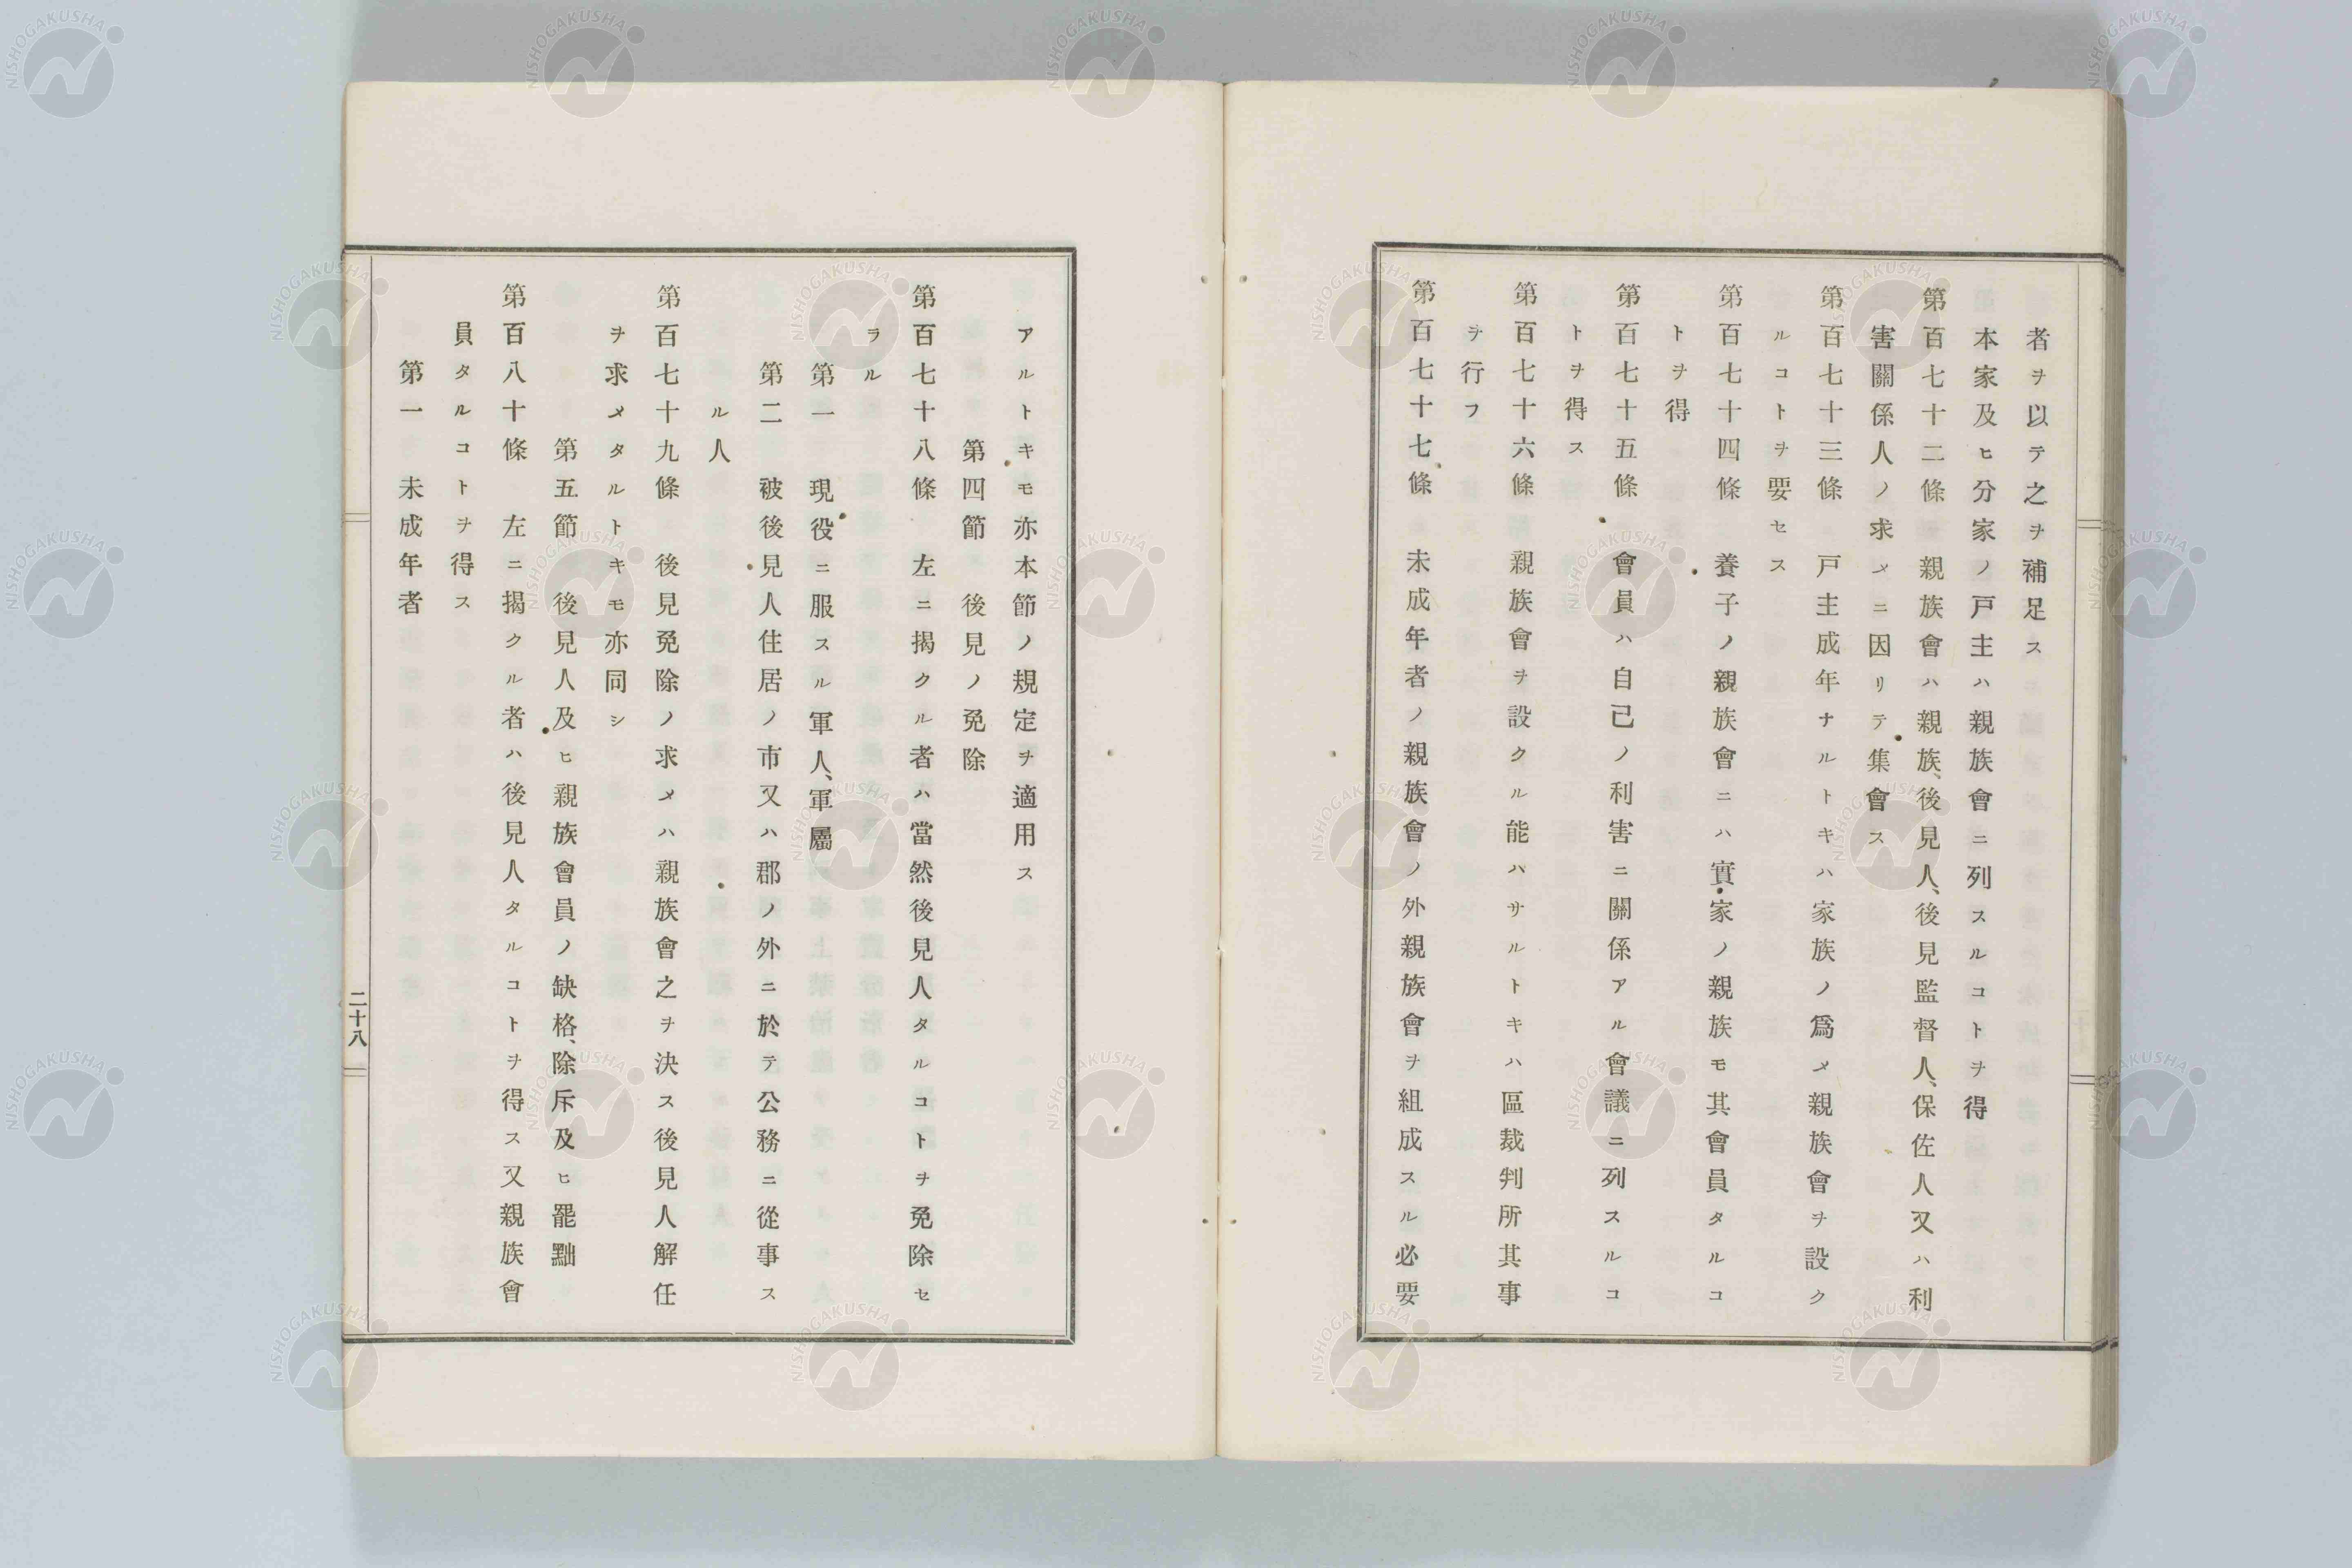 者ヲ以テ之ヲ補足ス
本家及ヒ分家ノ戸主ハ親族會ニ列スルコトヲ得
第百七十二條　親族會ハ親族、後見人、後見監督人、保佐人又ハ利
害關係人ノ求メニ因リテ集會ス
第百七十三條　戸主成年ナルトキハ家族ノ爲メ親族會ヲ設ク
ルコトヲ要セス
第百七十四條　養子ノ親族會ニハ實家ノ親族モ其會員タルコ
トヲ得
第百七十五條　會員ハ自己ノ利害ニ關係アル會議ニ列スルコ
トヲ得ス
第百七十六條　親族會ヲ設クル能ハサルトキハ區裁判所其事
ヲ行フ
第百七十七條　未成年者ノ親族會ノ外親族會ヲ組成スル必要
アルトキモ亦本節ノ規定ヲ適用ス
第四節　後見ノ免除
第百七十八條　左ニ揭クル者ハ當然後見人タルコトヲ免除セ
ラル
第一　現役ニ服スル軍人、軍屬
第二　被後見人住居ノ市又ハ郡ノ外ニ於テ公務ニ從事ス
ル人
第百七十九條　後見免除ノ求メハ親族會之ヲ決ス後見人解任
ヲ求メタルトキモ亦同シ
第五節　後見人及ヒ親族會員ノ缺格、除斥及ヒ罷黜
第百八十條　左ニ揭クル者ハ後見人タルコトヲ得ス又親族會
員タルコトヲ得ス
第一　未成年者
二十八
NISHOGAKUSHA